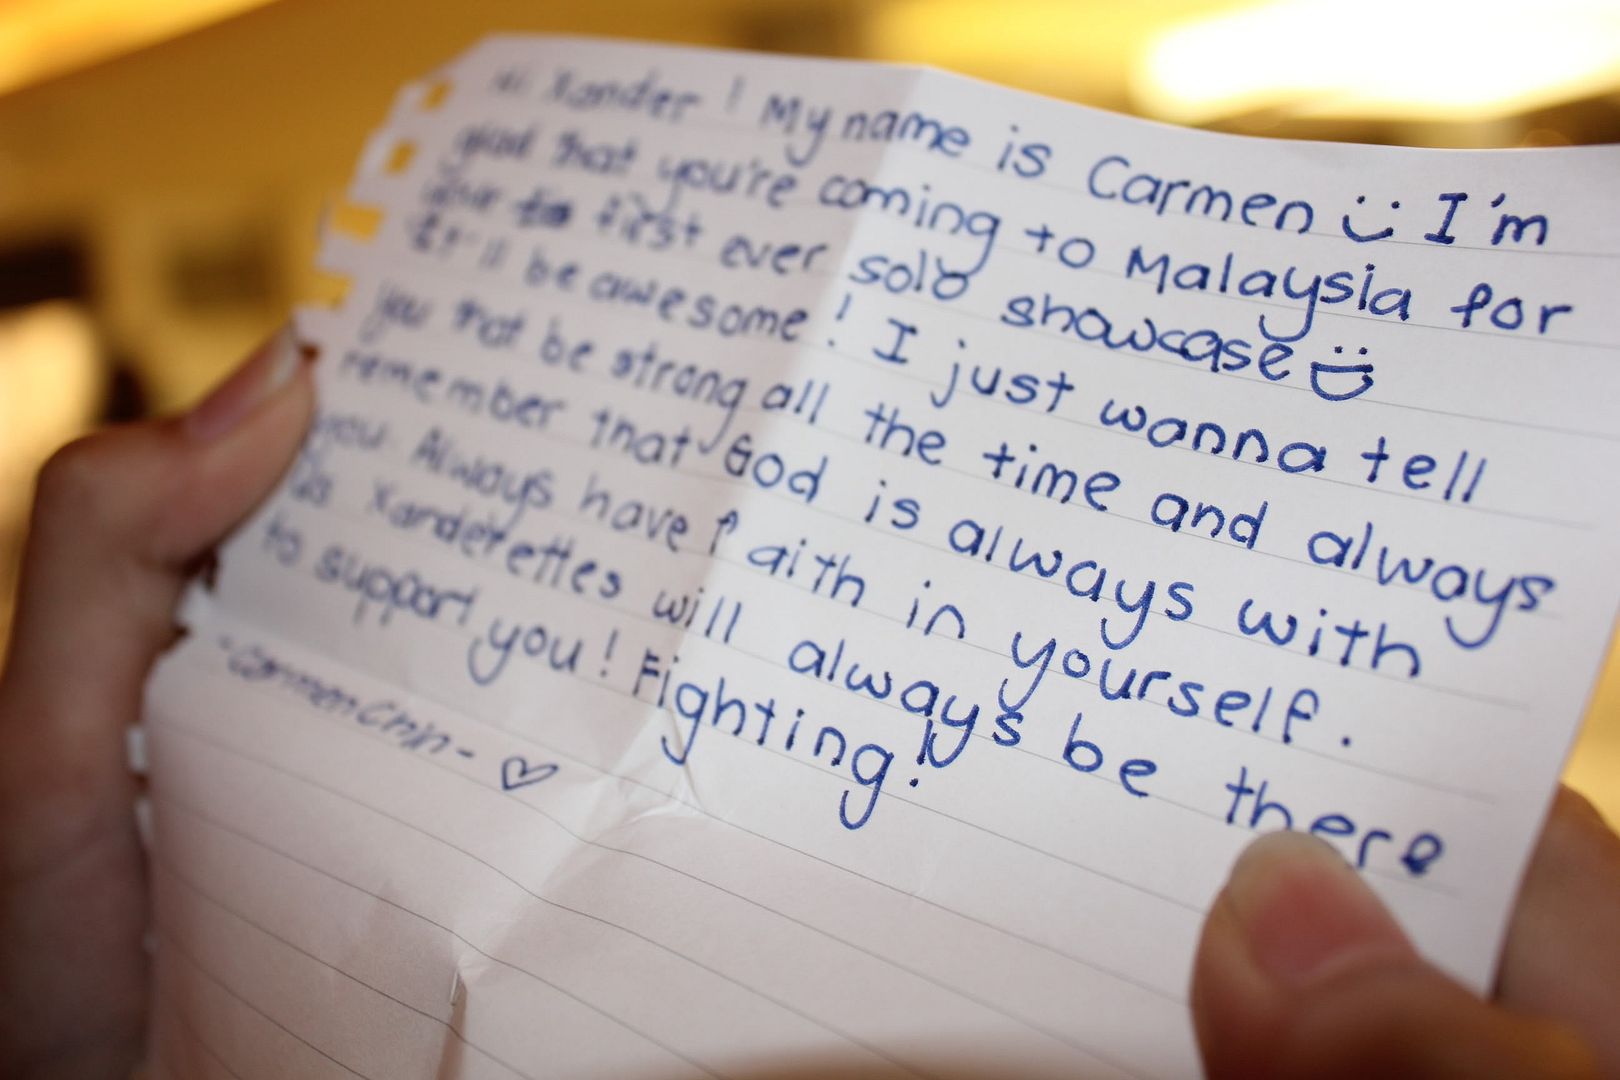 Hi Xander! My name is Carmen :) I'm
glad that you're coming to Malaysia for
your first ever solo showcase :D
It'll be awesome! I just wanna tell
you that be strong all the time and always
remember that God is always with
you. Always have faith in yourself.
Da Xanderettes will always be there
to support you! Fighting!
-Carmen Chin- ♡